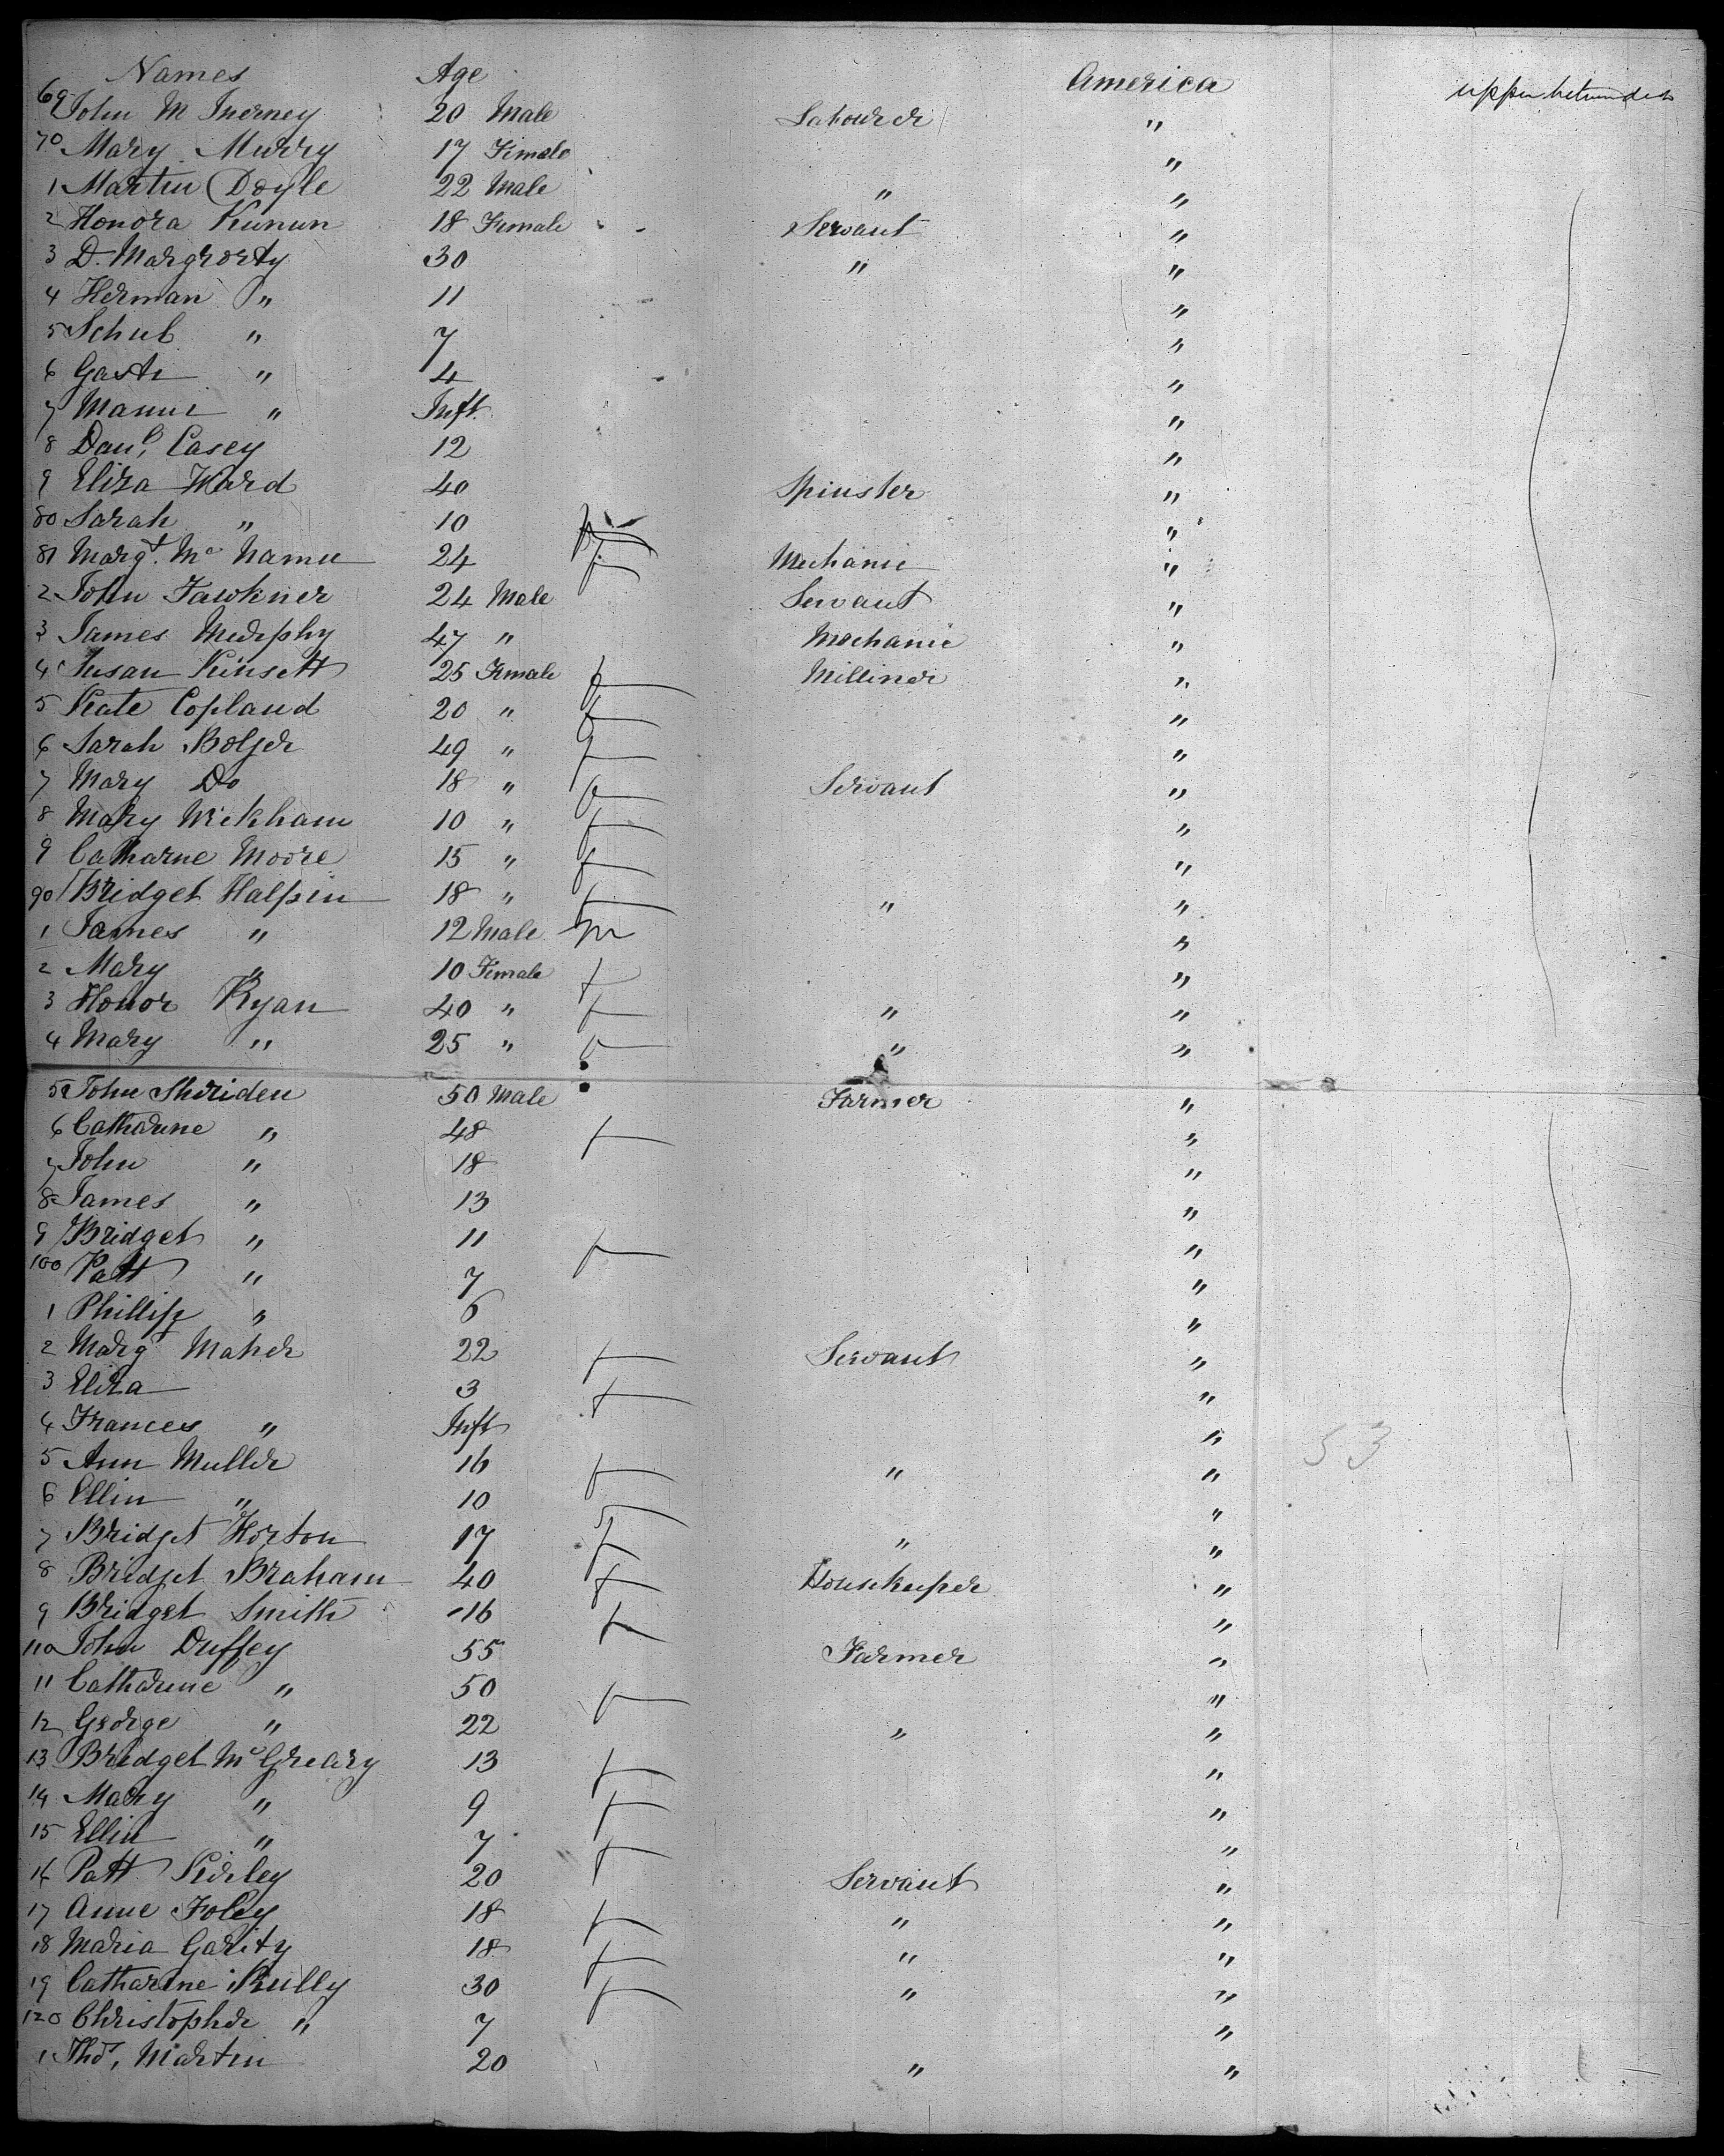 Names Age America upper between decks
69 John McInerney 20 Male Labourer "
70 Mary Murry 17 Female "
1 Martin Doyle 22 Male " "
2 Honora 18 Female Servant "
3 D. Margrorty 30 " "
4 Herman " 11 "
5 Schub " 7 "
6 " 4 "
7 " Inft. "
8 Danl. Casey 12 "
9 Eliza Ward 40 Spinster "
80 Sarah " 10 f "
81 Margt. Mc Name 24 f Mechanic "
2 John Fawkner 24 Male Servant "
3 James Murphy 47 " Mechanic "
4 Susan Kinsett 25 Female f Milliner "
5 Kate Copland 20 " f "
6 Sarah Bolger 49 " f "
7 Mary Do 18 " f Servant "
8 Mary Wickham 10 " f "
9 Catharne Moore 15 " f "
90 Bridget Halpin 18 " f " "
1 James " 12 Male m "
2 Mary " 10 Female f "
3 Honor Ryan 40 " f " "
4 Mary " 25 " f " "
5 John Sheriden 50 Male Farmer "
6 Catharine " 48 f "
7 John " 18 "
8 James " 13 "
9 Bridget " 11 f "
100 Patt " 7 "
1 Phillip " 6 "
2 Margt Maher 22 f Servant "
3 Eliza 3 f "
4 Frances " Inft "
53
5 Ann Muller 16 f " "
6 Ellin " 10 f "
7 Bridget Horton 17 f " "
8 Bridget Braham 40 f Housekeeper "
9 Bridget Smith 16 f "
110 John Duffey 55 Farmer "
11 Catharine " 50 f "
12 George " 22 " "
13 Bridget McGreary 13 f "
14 Mary " 9 f "
15 Ellin " 7 f "
16 Patt Kirley 20 Servant "
17 Anne Foley 18 f " "
18 Maria Garity 18 f " "
19 Catharine Kully 30 f " "
120 Christopher " 7 "
1 Thos, Martin 20 " "